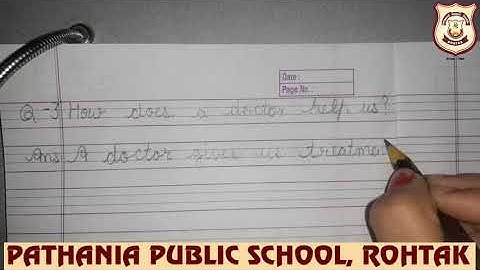 Date :
Page No. :
Q-3 How does a doctor help us?
Ans A doctor gives us treatmen
PATHANIA PUBLIC SCHOOL, ROHTAK